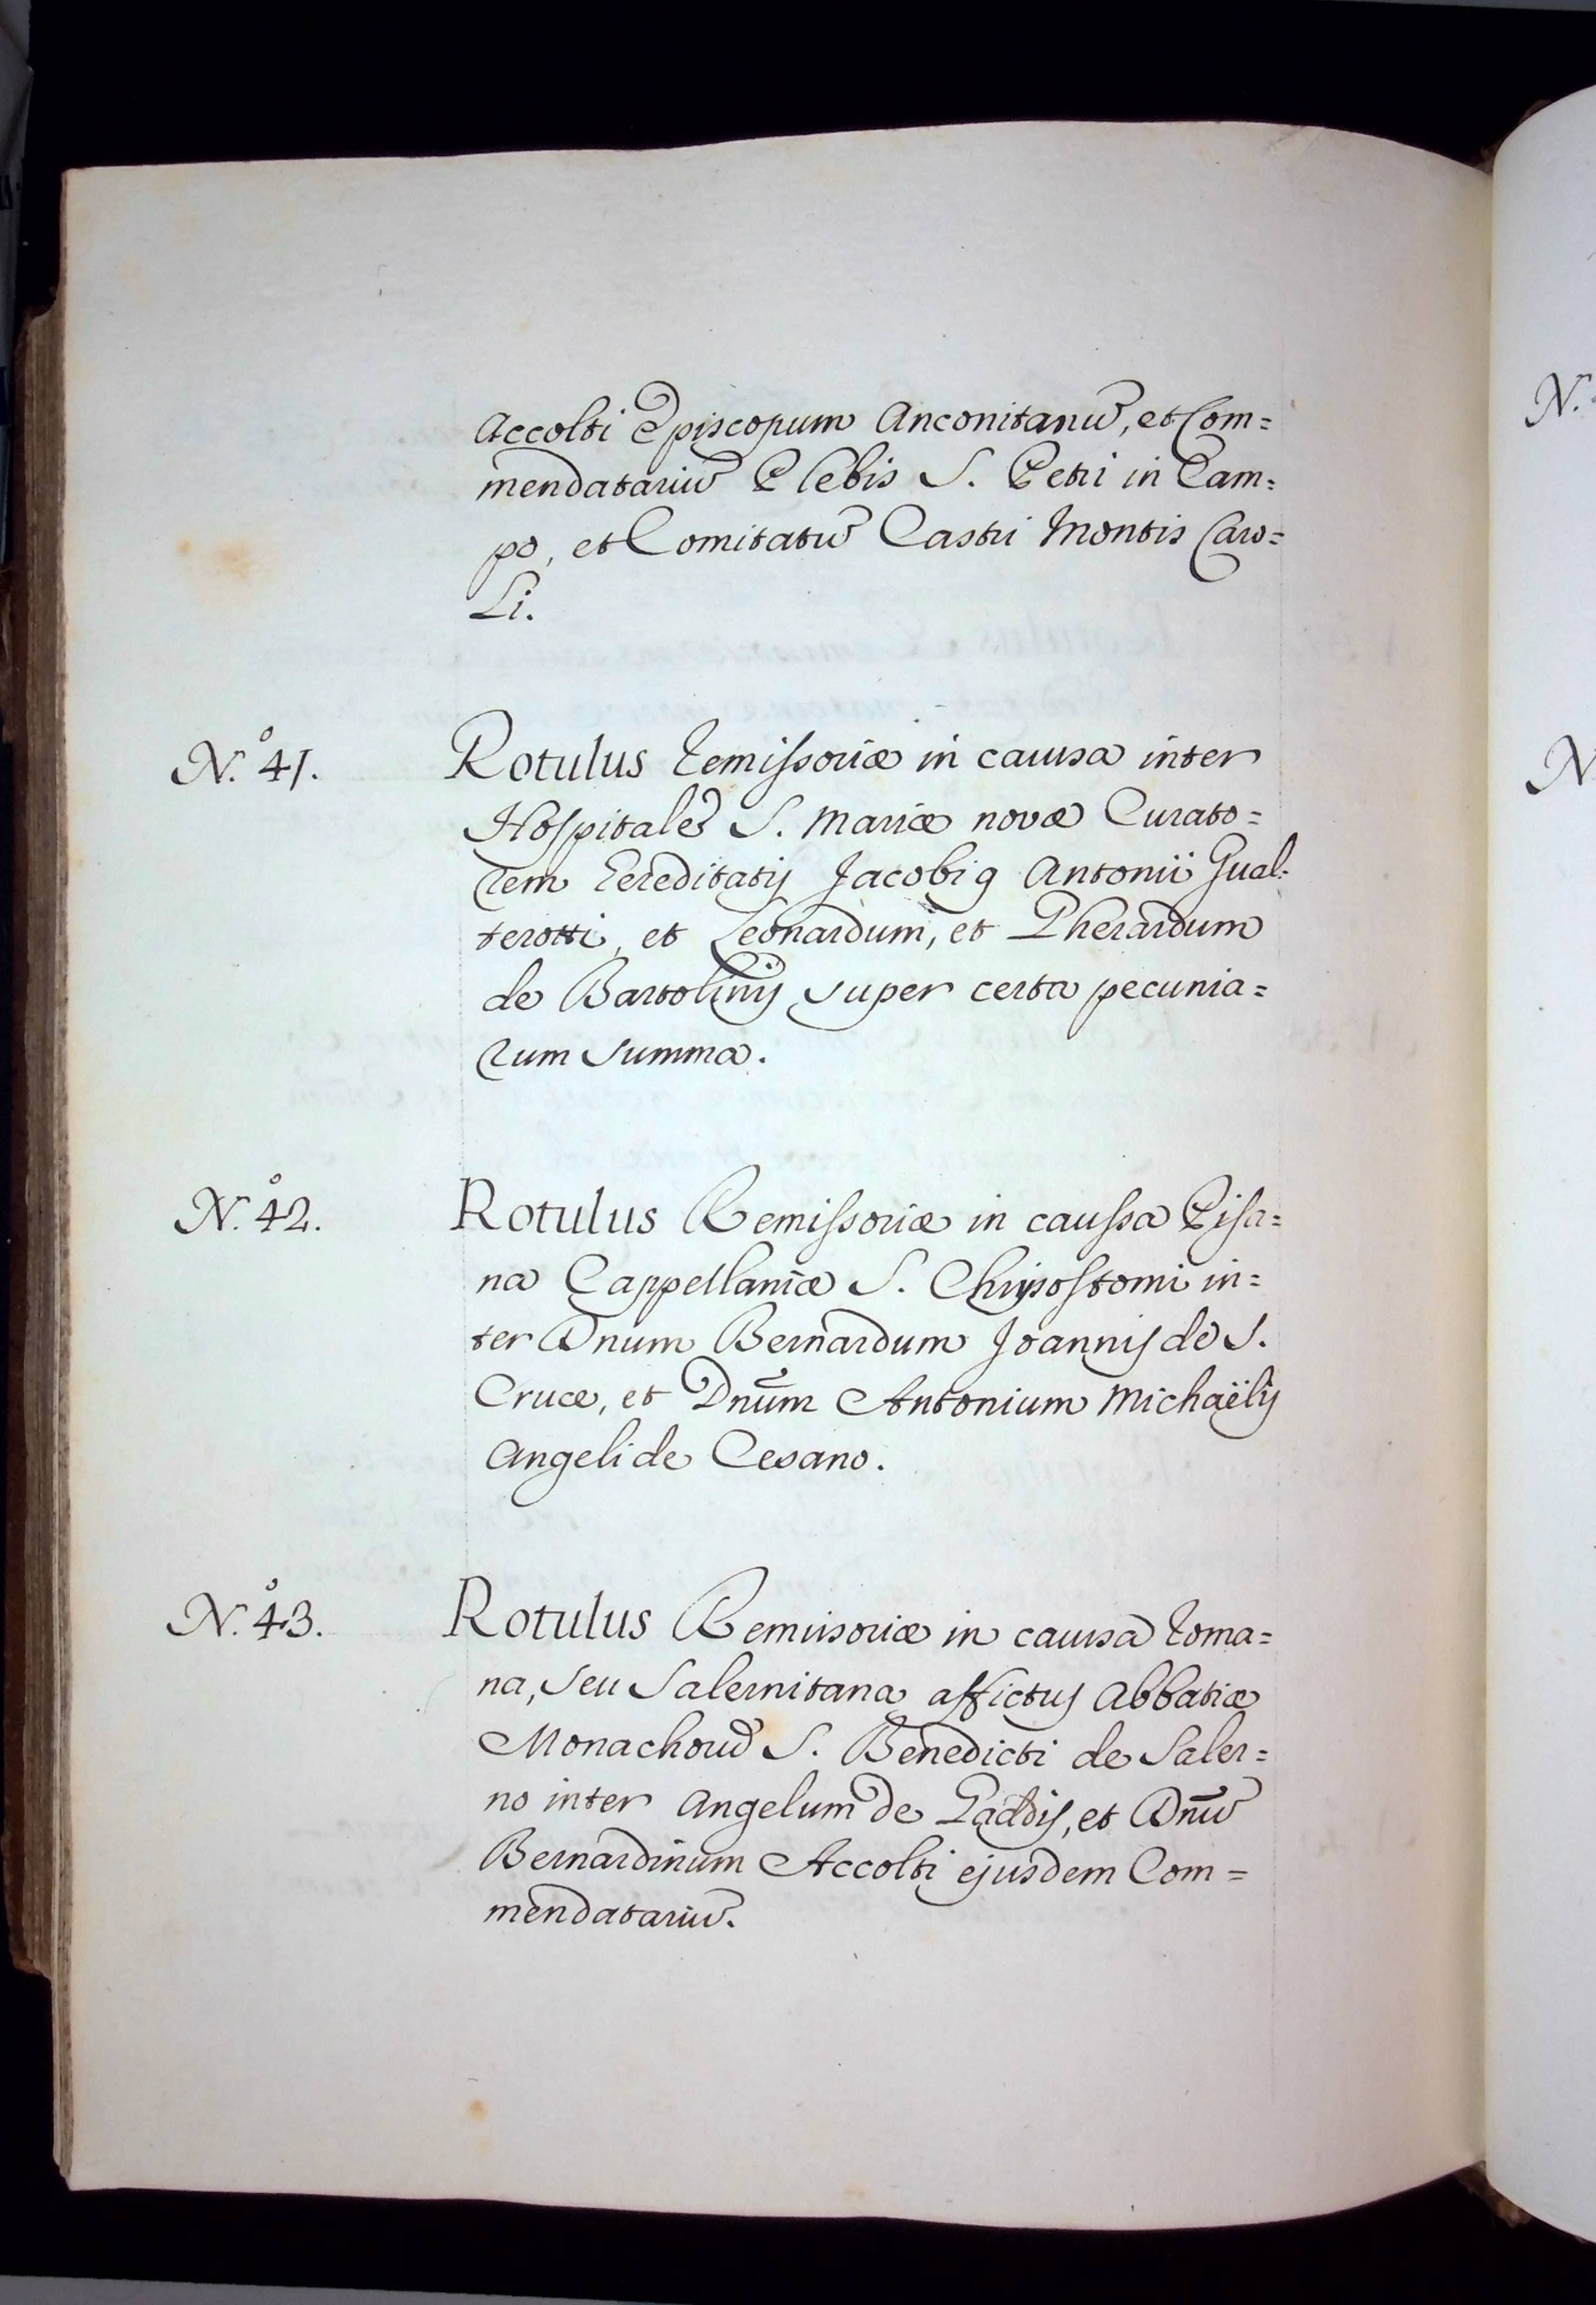 Accolti Episcopum Anconitanũ, et Com=
mendatariũ Plebis S. Petri in Cam=
po, et Comitatũ Castri Montis Caro=
Li.
N.º 41. Rotulus Remissoriæ in causa inter
Hospitale S. Mariæ novæ Curato=
rem Hereditatis Jacobi q Antonii Gual=
terotti, et Leonardum, et Gherardum
de Bartolinis super certa pecunia=
rum summa.
N.º 42. Rotulus Remissoriæ in caussa Pisa=
na Cappellaniæ S. Chrysostomi in=
ter Dnum Bernardum Joannis de S.
Cruce, et Dnũm Antonium Michaëlis
Angeli de Cesano.
N.º 43. Rotulus Remissoriæ in causa Roma=
na, seu Salernitana affictus Abbatiæ
Monachorũ S. Benedicti de Saler=
no inter Angelum de Gaddis, et Dnũ
Bernardinum Accolti ejusdem Com=
mendatariũ.
N.
N